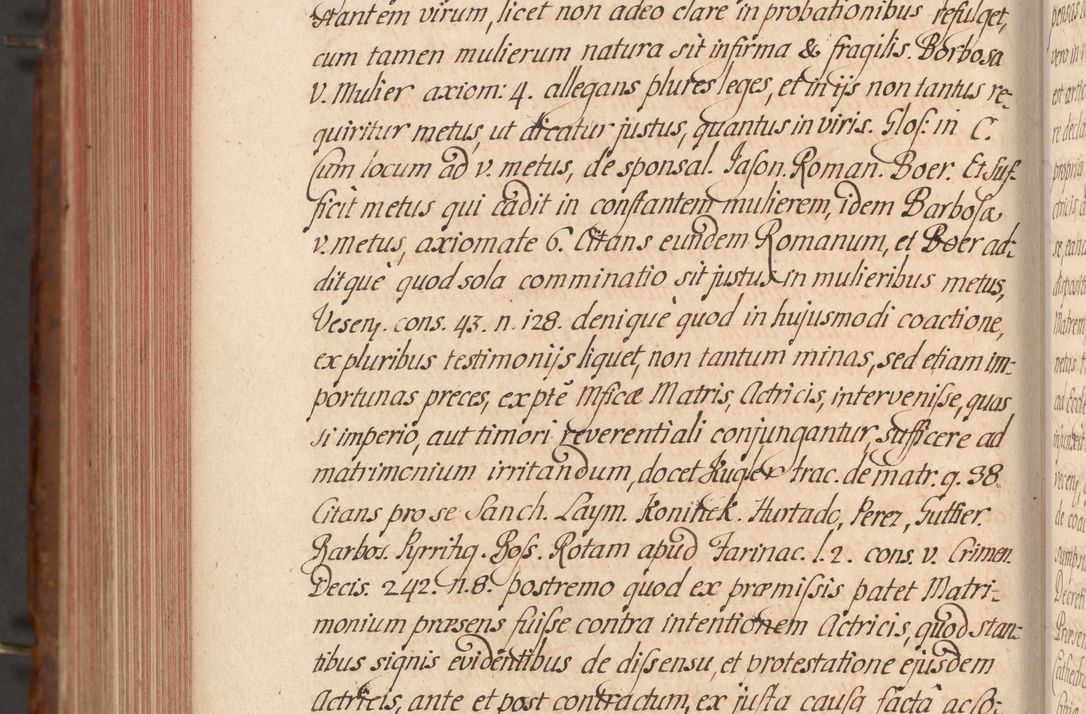 stantem virum, licet non adeo clare in probationibus refulget,
cum tamen mulierum natura sit infirma & fragilis. Borbosa
V. Mulier axiom: 4. allegans plures leges, et in ijs non tantus re-
quiritur metus, ut dicatur justus, quantus in viris. Glos: in C.
cum locum ad v. metus, de sponsal. Jason. Roman. Boer. Et suf-
ficit metus qui cadit in constantem mulierem, idem Barbosa
v. metus, axiomate 6. Citans eundem Romanum, et Boer ad-
ditque quod sola comminatio sit justus in mulieribus metus,
Vesenj. cons. 43. n. 128. denique quod in hujusmodi coactione,
ex pluribus testimonijs liquet, non tantum minas, sed etiam im-
portunas preces, ex pte Mficæ Matris, Actricis, intervenisse, quas
si imperio, aut timori reverentiali conjungantur, sufficere ad
matrimonium irritandum, docet Kugler trac. de matr. q. 38.
Citans pro se Sanch. Laym. Koninck. Hurtado, Perez, Guttier.
Barbos. Pyrrihg. Boss. Rotam apud Farinac. l. 2. cons. v. Crimen.
Decis. 242. n. 8. postremo quod ex præmissis patet Matri-
monium præsens fuisse contra intentionem Actricis, quod stan-
tibus signis evidentibus de dissensu, et protestatione ejusdem
Actricis, ante et post contractum, ex justa causa facta ac so-